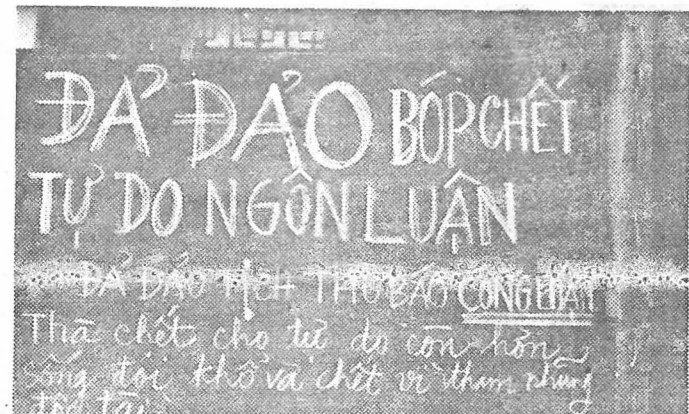 ĐẢ ĐẢO BÓP CHẾT
TỰ DO NGÔN LUẬN
ĐẢ ĐẢO TỊCH THU BÁO CÔNG LUẬN
Thà chết cho tự do còn hơn
sống đói khổ và chết vì tham nhũng
độc tài